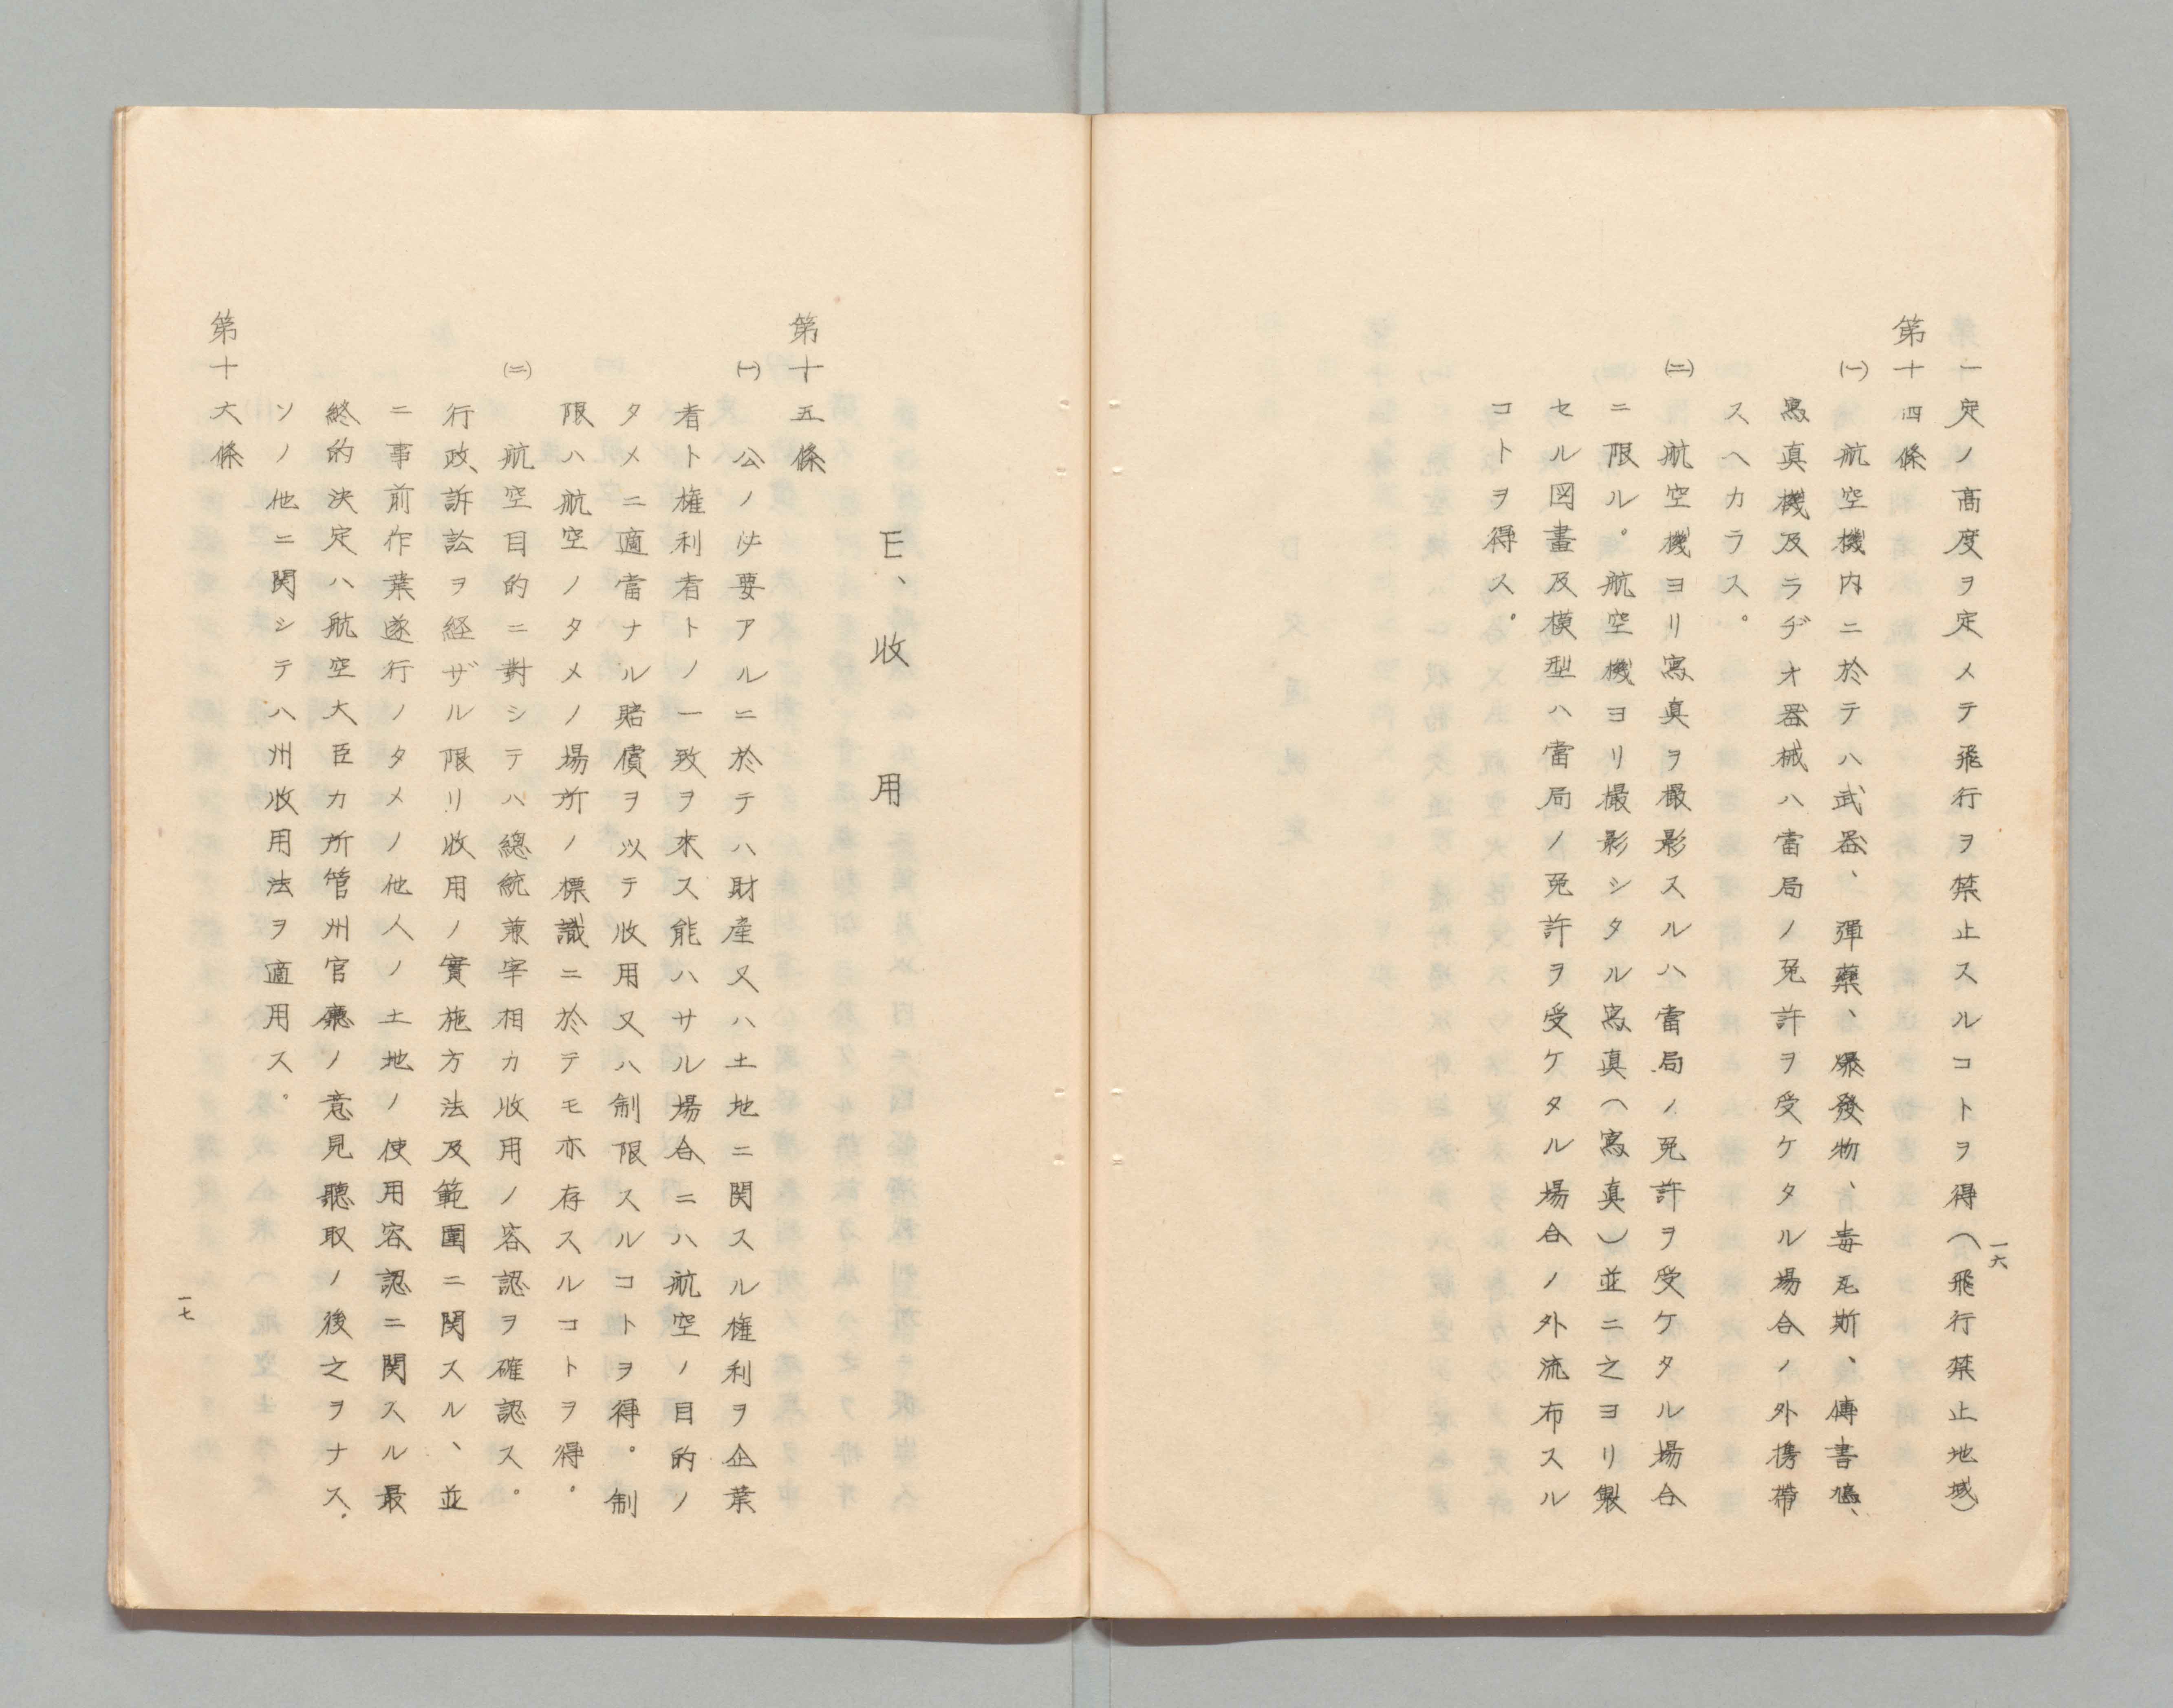 一定ノ高度ヲ定メテ飛行ヲ禁止スルコトヲ得(飛行禁止地域)
第十四條
(一) 航空機内ニ於テハ武器、彈藥、爆發物、毒瓦斯、傳書鳩、
寫真機及ラヂオ器械ハ當局ノ免許ヲ受ケタル場合ノ外携帶
スヘカラス。
(二) 航空機ヨリ寫真ヲ撮影スルハ當局ノ免許ヲ受ケタル場合
ニ限ル。航空機ヨリ撮影シタル寫真(寫真)並ニ之ヨリ製
セル図畫及模型ハ當局ノ免許ヲ受ケタル場合ノ外流布スル
コトヲ得ス。
一六
E、收用
第十五條
(一) 公ノ必要アルニ於テハ財産又ハ土地ニ関スル権利ヲ企業
者ト権利者トノ一致ヲ來ス能ハサル場合ニハ航空ノ目的ノ
タメニ適當ナル賠償ヲ以テ收用又ハ制限スルコトヲ得。制
限ハ航空ノタメノ場所ノ標識ニ於テモ亦存スルコトヲ得。
(二) 航空目的ニ對シテハ總統兼宰相カ收用ノ容認ヲ確認ス。
行政訴訟ヲ経ザル限リ收用ノ實施方法及範圍ニ関スル、並
ニ事前作業遂行ノタメノ他人ノ土地ノ使用容認ニ関スル最
終的決定ハ航空大臣カ所管州官廳ノ意見聽取ノ後之ヲナス。
ソノ他ニ関シテハ州收用法ヲ適用ス。
第十六條
一七